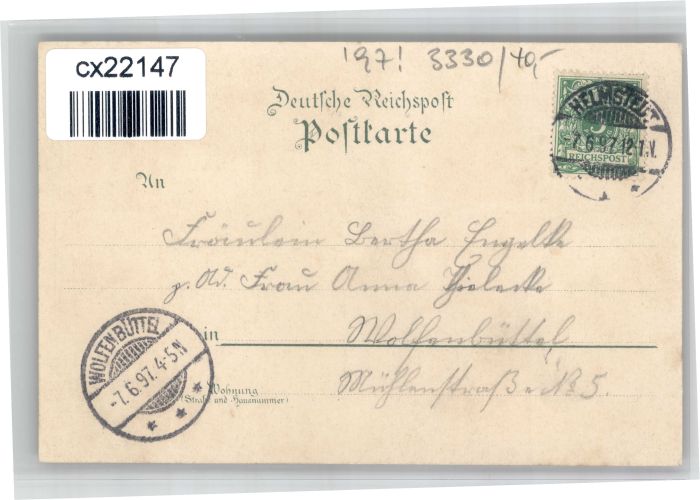 cx22147
'97! 3330/40,-
Deutsche Reichspost
Postkarte
HELMSTEDT
7.6.97.12-1.V.
5
REICHSPOST
An
Fräulein Bertha Engelke
p. Ad. Frau Anna Thielecke
in Wolfenbüttel
Mühlenstraße No. 5.
Wohnung
(Straße und Hausnummer)
WOLFENBÜTTEL
-7.6.97.4-5N